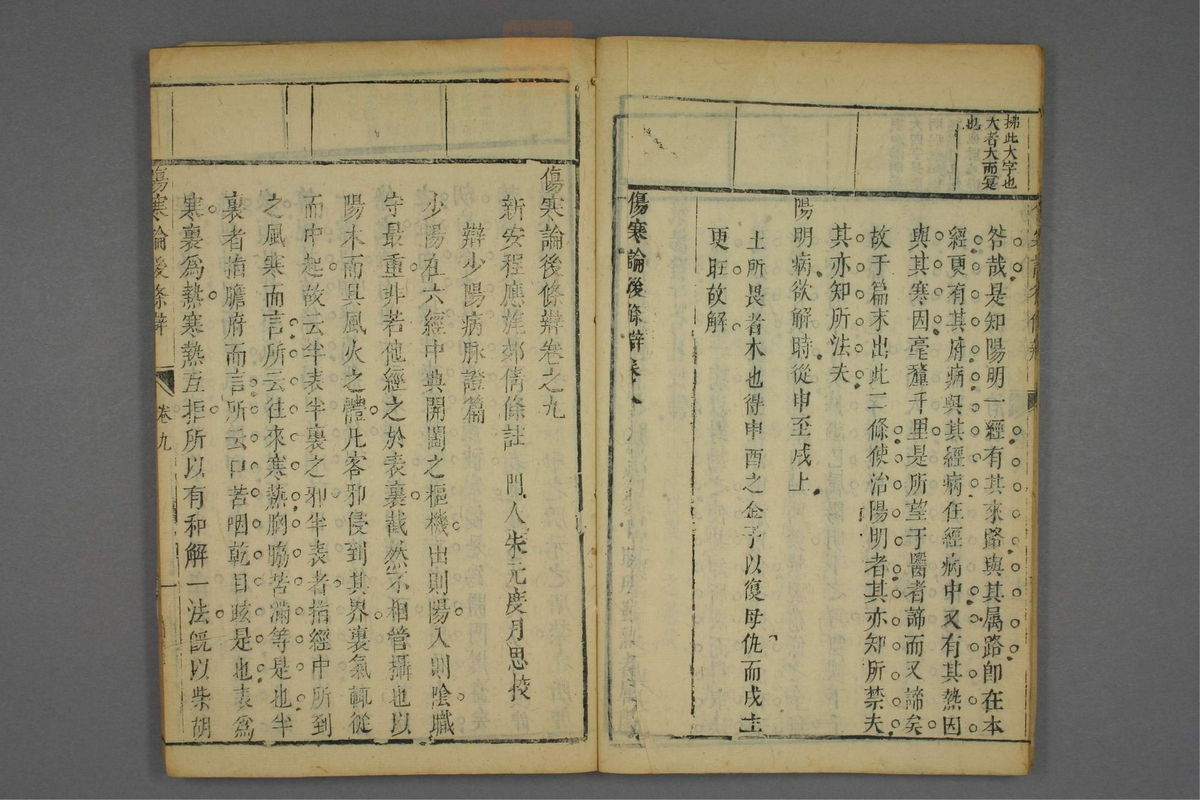 掃此大字也
大者大而寔
也
咎哉是知陽明一經有其來路與其属路即在本
經更有其府病與其經病在經病中又有其熱因
與其寒因毫釐千里是所望于醫者諦而又諦矣
故于篇末出此二條使治陽明者其亦知所禁夫
其亦知所法夫
陽明病欲解時從申至戌上
土所畏者木也得申酉之金子以復母仇而戌土
更旺故解
傷寒論後條辯卷八
傷寒論後條辯卷之九
新安程應旄郊倩條註 門人朱元度月思校
辯少陽病脉證篇
少陽在六經中典開闔之樞機出則陽入則陰職
守最重非若他經之於表裏截然不相管攝也以
陽木而具風火之體凡客邪侵到其界裏氣輒從
而中起故云半表半裏之邪半表者指經中所到
之風寒而言所云往來寒熱胸脇苦滿等是也半
裏者指膽府而言所云口苦咽乾目眩是也表爲
寒裏爲熱寒熱互拒所以有和解一法旣以柴胡
傷寒論後條辯
卷九
一